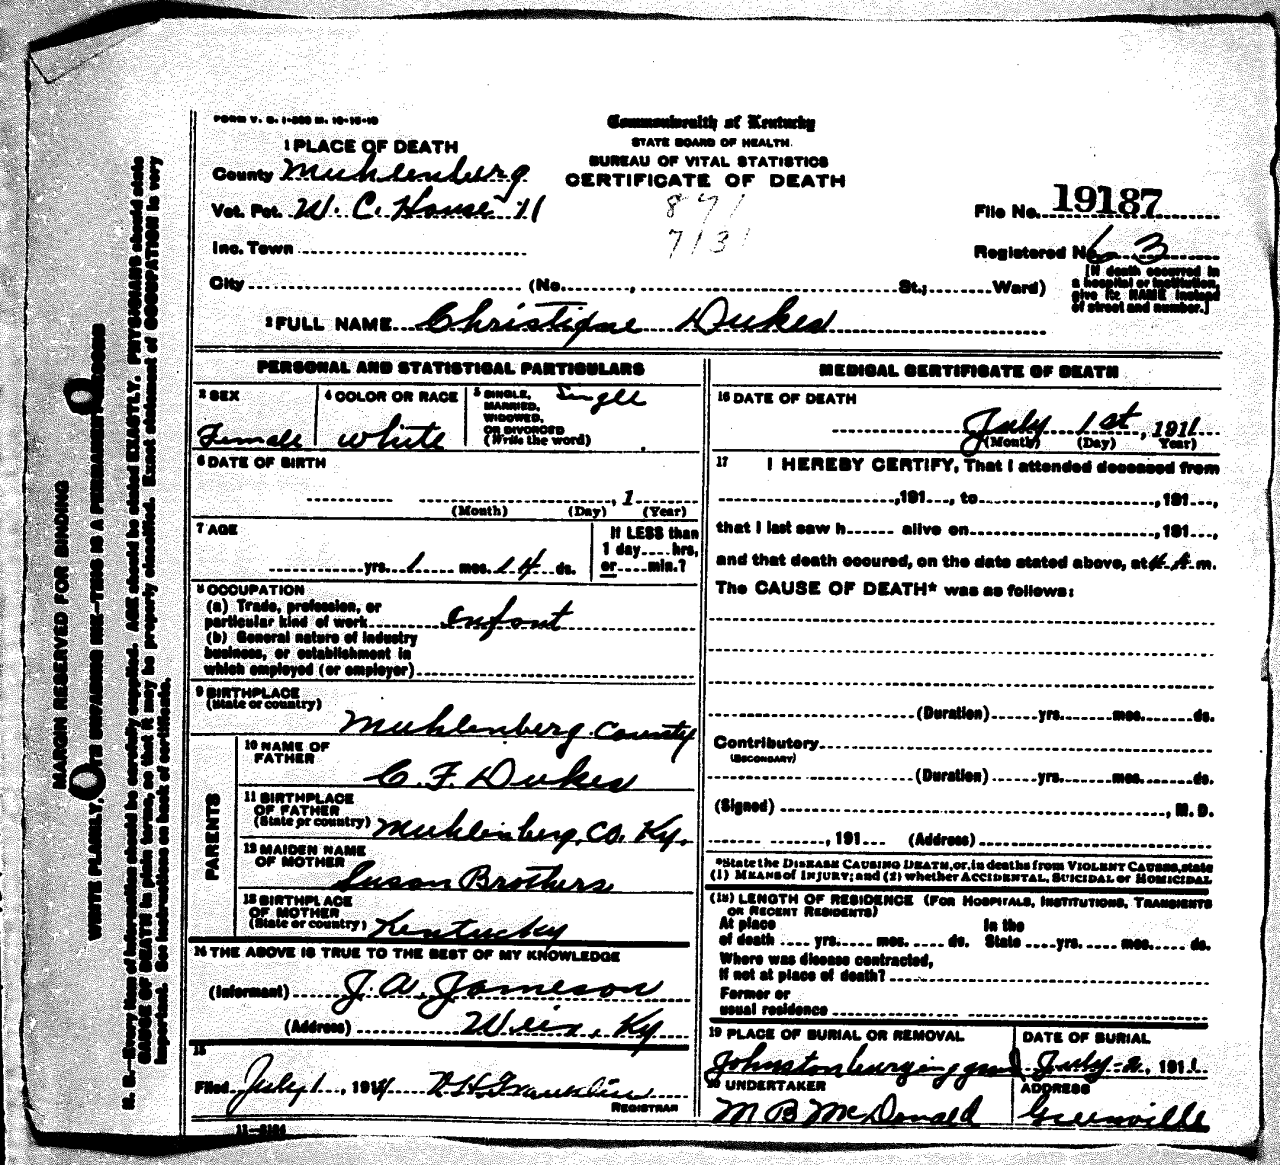 FORM V. S. 1-500 M. 10-15-10
Commonwealth of Kentucky
STATE BOARD OF HEALTH.
BUREAU OF VITAL STATISTICS
CERTIFICATE OF DEATH
1 PLACE OF DEATH
County Muhlenberg
Vot. Pct. W. C. House 11
871
731
File No. 19187
Inc. Town
Registered No. 63
City (No. , St.; Ward)
[If death occurred in
a hospital or institution,
give its NAME instead
of street and number.]
2 FULL NAME Christine Dukes
PERSONAL AND STATISTICAL PARTICULARS
3 SEX
Female
4 COLOR OR RACE
white
5 SINGLE, MARRIED, WIDOWED, OR DIVORCED (Write the word)
Single
6 DATE OF BIRTH
, 1
(Month) (Day) (Year)
7 AGE
yrs. 1 mos. 14 ds.
If LESS than
1 day hrs,
or min.?
8 OCCUPATION
(a) Trade, profession, or
particular kind of work infant
(b) General nature of industry
business, or establishment in
which employed (or employer)
9 BIRTHPLACE
(State or country)
Muhlenberg County
PARENTS
10 NAME OF
FATHER
C. F. Dukes
11 BIRTHPLACE
OF FATHER
(State or country) Muhlenberg, Co. Ky.
12 MAIDEN NAME
OF MOTHER
Susan Brothers
13 BIRTHPLACE
OF MOTHER
(State or country) Kentucky
14 THE ABOVE IS TRUE TO THE BEST OF MY KNOWLEDGE
(Informant) J. A. Jameson
(Address) Weir, Ky
15
Filed July 1, 1911 Franklin
REGISTRAR
11-3184
MEDICAL CERTIFICATE OF DEATH
16 DATE OF DEATH
July 1st, 1911
(Month) (Day) Year)
17 I HEREBY CERTIFY, That I attended deceased from
, 191 , to , 191 ,
that I last saw h alive on , 191 ,
and that death occured, on the date stated above, at 4 A m.
The CAUSE OF DEATH* was as follows:
(Duration) yrs. mos. ds.
Contributory
(SECONDARY)
(Duration) yrs. mos. ds.
(Signed) , M. D.
, 191 (Address)
*State the DISEASE CAUSING DEATH, or, in deaths from VIOLENT CAUSES, state
(1) MEANS of INJURY; and (2) whether ACCIDENTAL, SUICIDAL or HOMICIDAL
(18) LENGTH OF RESIDENCE (FOR HOSPITALS, INSTITUTIONS, TRANSIENTS
OR RECENT RESIDENTS)
At place In the
of death yrs. mos. ds. State yrs. mos. ds.
Where was disease contracted,
If not at place of death?
Former or
usual residence
19 PLACE OF BURIAL OR REMOVAL
Johnston burying
DATE OF BURIAL
July 2, 1911
20 UNDERTAKER
M B McDonald
ADDRESS
Greenville
MARGIN RESERVED FOR BINDING
WRITE PLAINLY, UNFADING INK—THIS IS A PERMANENT RECORD
N. B.—Every item of information should be carefully supplied. AGE should be stated EXACTLY. PHYSICIANS should state
CAUSE OF DEATH in plain terms, so that it may be properly classified. Exact statement of OCCUPATION is very
important. See instructions on back of certificate.